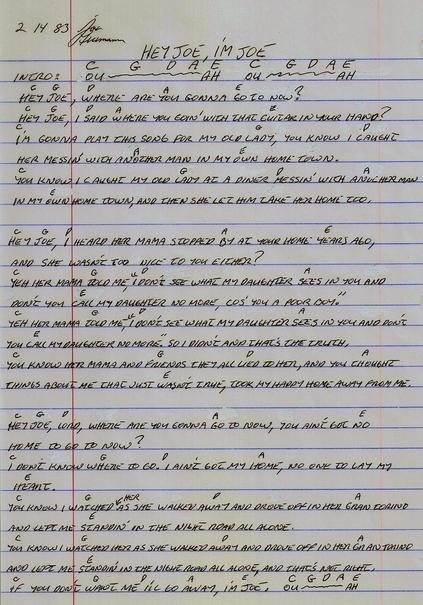 2 14 83
HEY JOE, I'M JOE
C G D A E C G D A E
INTRO: OU AH OU AH
C G D A E
HEY JOE, WHERE ARE YOU GONNA GO TO NOW?
C G D A E
HEY JOE, I SAID WHERE YOU GOIN' WITH THAT GUITAR IN YOUR HAND?
C G D
I'M GONNA PLAY THIS SONG FOR MY OLD LADY, YOU KNOW I CAUGHT
A E
HER MESSIN' WITH ANOTHER MAN IN MY OWN HOME TOWN.
C G D A
YOU KNOW I CAUGHT MY OLD LADY AT A DINER MESSIN' WITH ANOTHER MAN
E
IN MY OWN HOME TOWN, AND THEN SHE LET HIM TAKE HER HOME TOO.
C G D A E
HEY JOE, I HEARD HER MAMA STOPPED BY AT YOUR HOME YEARS AGO,
AND SHE WASN'T TOO NICE TO YOU EITHER?
C G D A
YEH HER MAMA TOLD ME, "I DON'T SEE WHAT MY DAUGHTER SEES IN YOU AND
E
DON'T YOU CALL MY DAUGHTER NO MORE, COS' YOU A POOR BOY."
C G D A
YEH HER MAMA TOLD ME, "I DON'T SEE WHAT MY DAUGHTER SEES IN YOU AND DON'T
E
YOU CALL MY DAUGHTER NO MORE." SO I DIDN'T AND THAT'S THE TRUTH,
C G D A
YOU KNOW HER MAMA AND FRIENDS THEY ALL LIED TO HER, AND YOU THOUGHT
E
THINGS ABOUT ME THAT JUST WASN'T TRUE, TOOK MY HAPPY HOME AWAY FROM ME.
C G D A E
HEY JOE, LORD, WHERE ARE YOU GONNA GO TO NOW, YOU AIN'T GOT NO
HOME TO GO TO NOW?
C G D A
I DON'T KNOW WHERE TO GO. I AIN'T GOT MY HOME, NO ONE TO LAY MY
E
HEART.
C G HER D A
YOU KNOW I WATCHED AS SHE WALKED AWAY AND DROVE OFF IN HER GRAN TORINO
E
AND LEFT ME STANDIN' IN THE NIGHT ROAD ALL ALONE.
C G D A
YOU KNOW I WATCHED HER AS SHE WALKED AWAY AND DROVE OFF IN HER GRAN TORINO
E
AND LEFT ME STANDIN' IN THE NIGHT ROAD ALL ALONE, AND THAT'S NOT RIGHT,
C G D A E C G D A E
IF YOU DON'T WANT ME I'LL GO AWAY, I'M JOE. OU AH